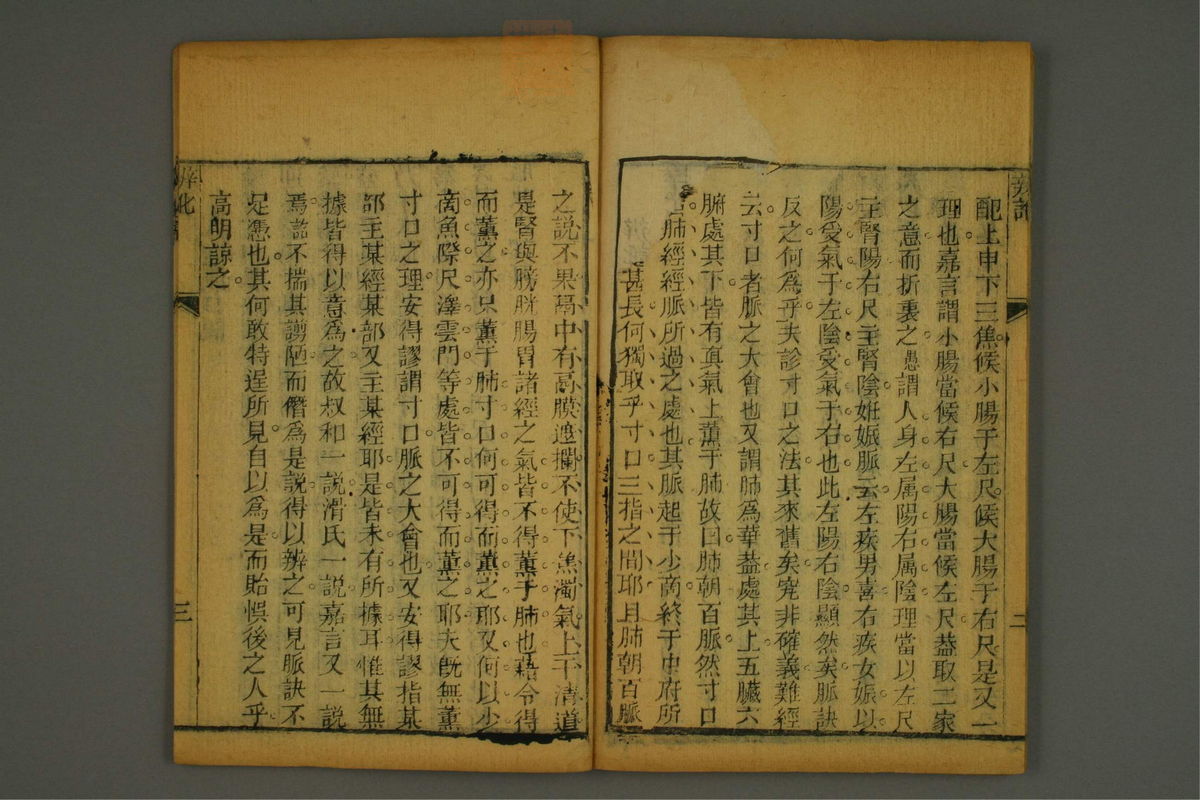 配上中下三焦候小腸于左尺候大腸于右尺是又一
理也嘉言謂小腸當候右尺大腸當候左尺蓋取二家
之意而折衷之愚謂人身左属陽右属陰理當以左尺
主腎陽右尺主腎陰姙娠脈云左疾男喜右疾女娠以
陽受氣于左陰受氣于右也此左陽右陰顯然矣脈訣
反之何爲乎夫診寸口之法其來舊矣究非確義難經
云寸口者脈之大會也又謂肺爲華蓋處其上五臟六
腑處其下皆有真氣上薰于肺故曰肺朝百脈然寸口
肺經經脈所過之處也其脈起于少商終于中府所
甚長何獨取乎寸口三指之間耶且肺朝百脈
之説不果鬲中有鬲膜遮攔不使下焦濁氣上干清道
是腎與膀胱腸胃諸經之氣皆不得薰于肺也藉令得
而薰之亦只薰于肺寸口何可得而薰之耶又何以少
商魚際尺澤雲門等處皆不可得而薰之耶夫既無薰
寸口之理安得謬謂寸口脈之大會也又安得謬指某
部主某經某部又主某經耶是皆未有所據耳惟其無
據皆得以意爲之故叔和一説滑氏一説嘉言又一説
焉誌不揣其謭陋而僭爲是説得以辨之可見脈訣不
足憑也其何敢特逞所見自以爲是而貽悞後之人乎
高明諒之
三